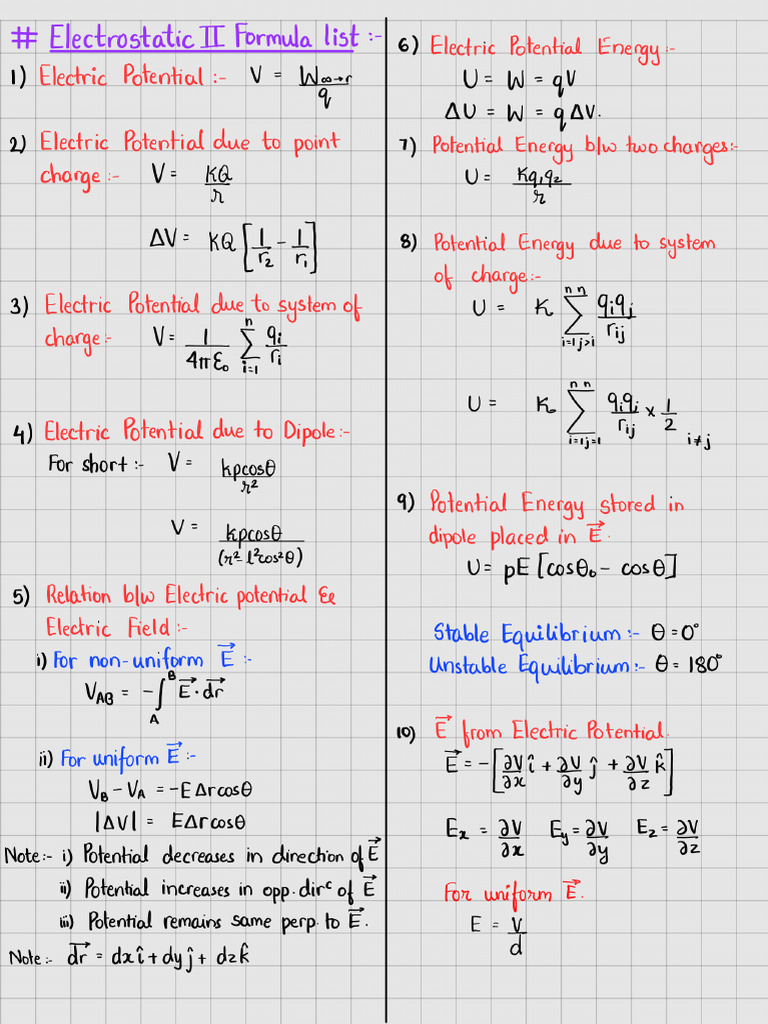 # Electrostatic II Formula list :-
1) Electric Potential :- V = W∞→r / q
2) Electric Potential due to point
charge :- V = KQ / r
ΔV = KQ [1/r₂ - 1/r₁]
3) Electric Potential due to system of
charge :- V = 1/4πε₀ Σ(i=1 to n) qi/ri
4) Electric Potential due to Dipole :-
For short :- V = kpcosθ / r²
V = kpcosθ / (r² - l²cos²θ)
5) Relation b/w Electric potential &
Electric Field :-
i) For non-uniform E⃗ :-
V_AB = -∫_A^B E⃗·dr⃗
ii) For uniform E⃗ :-
V_B - V_A = -EΔrcosθ
|ΔV| = EΔrcosθ
Note :- i) Potential decreases in direction of E⃗
ii) Potential increases in opp. dirᶜ of E⃗
iii) Potential remains same perp. to E⃗.
Note :- dr⃗ = dxî + dyĵ + dzk̂
6) Electric Potential Energy :-
U = W = qV
ΔU = W = qΔV.
7) Potential Energy b/w two charges :-
U = Kq₁q₂ / r
8) Potential Energy due to system
of charge :-
U = K Σ(i=1 j>i to n n) qiqj / rij
U = K Σ(i=1 j=1 to n n) qiqi / rij × 1/2 i≠j
9) Potential Energy stored in
dipole placed in E⃗.
U = pE [cosθ₀ - cosθ]
Stable Equilibrium :- θ = 0°
Unstable Equilibrium :- θ = 180°
10) E⃗ from Electric Potential.
E⃗ = -[∂V/∂x î + ∂V/∂y ĵ + ∂V/∂z k̂]
Ex = ∂V/∂x Ey = ∂V/∂y Ez = ∂V/∂z
For uniform E⃗.
E = V/d